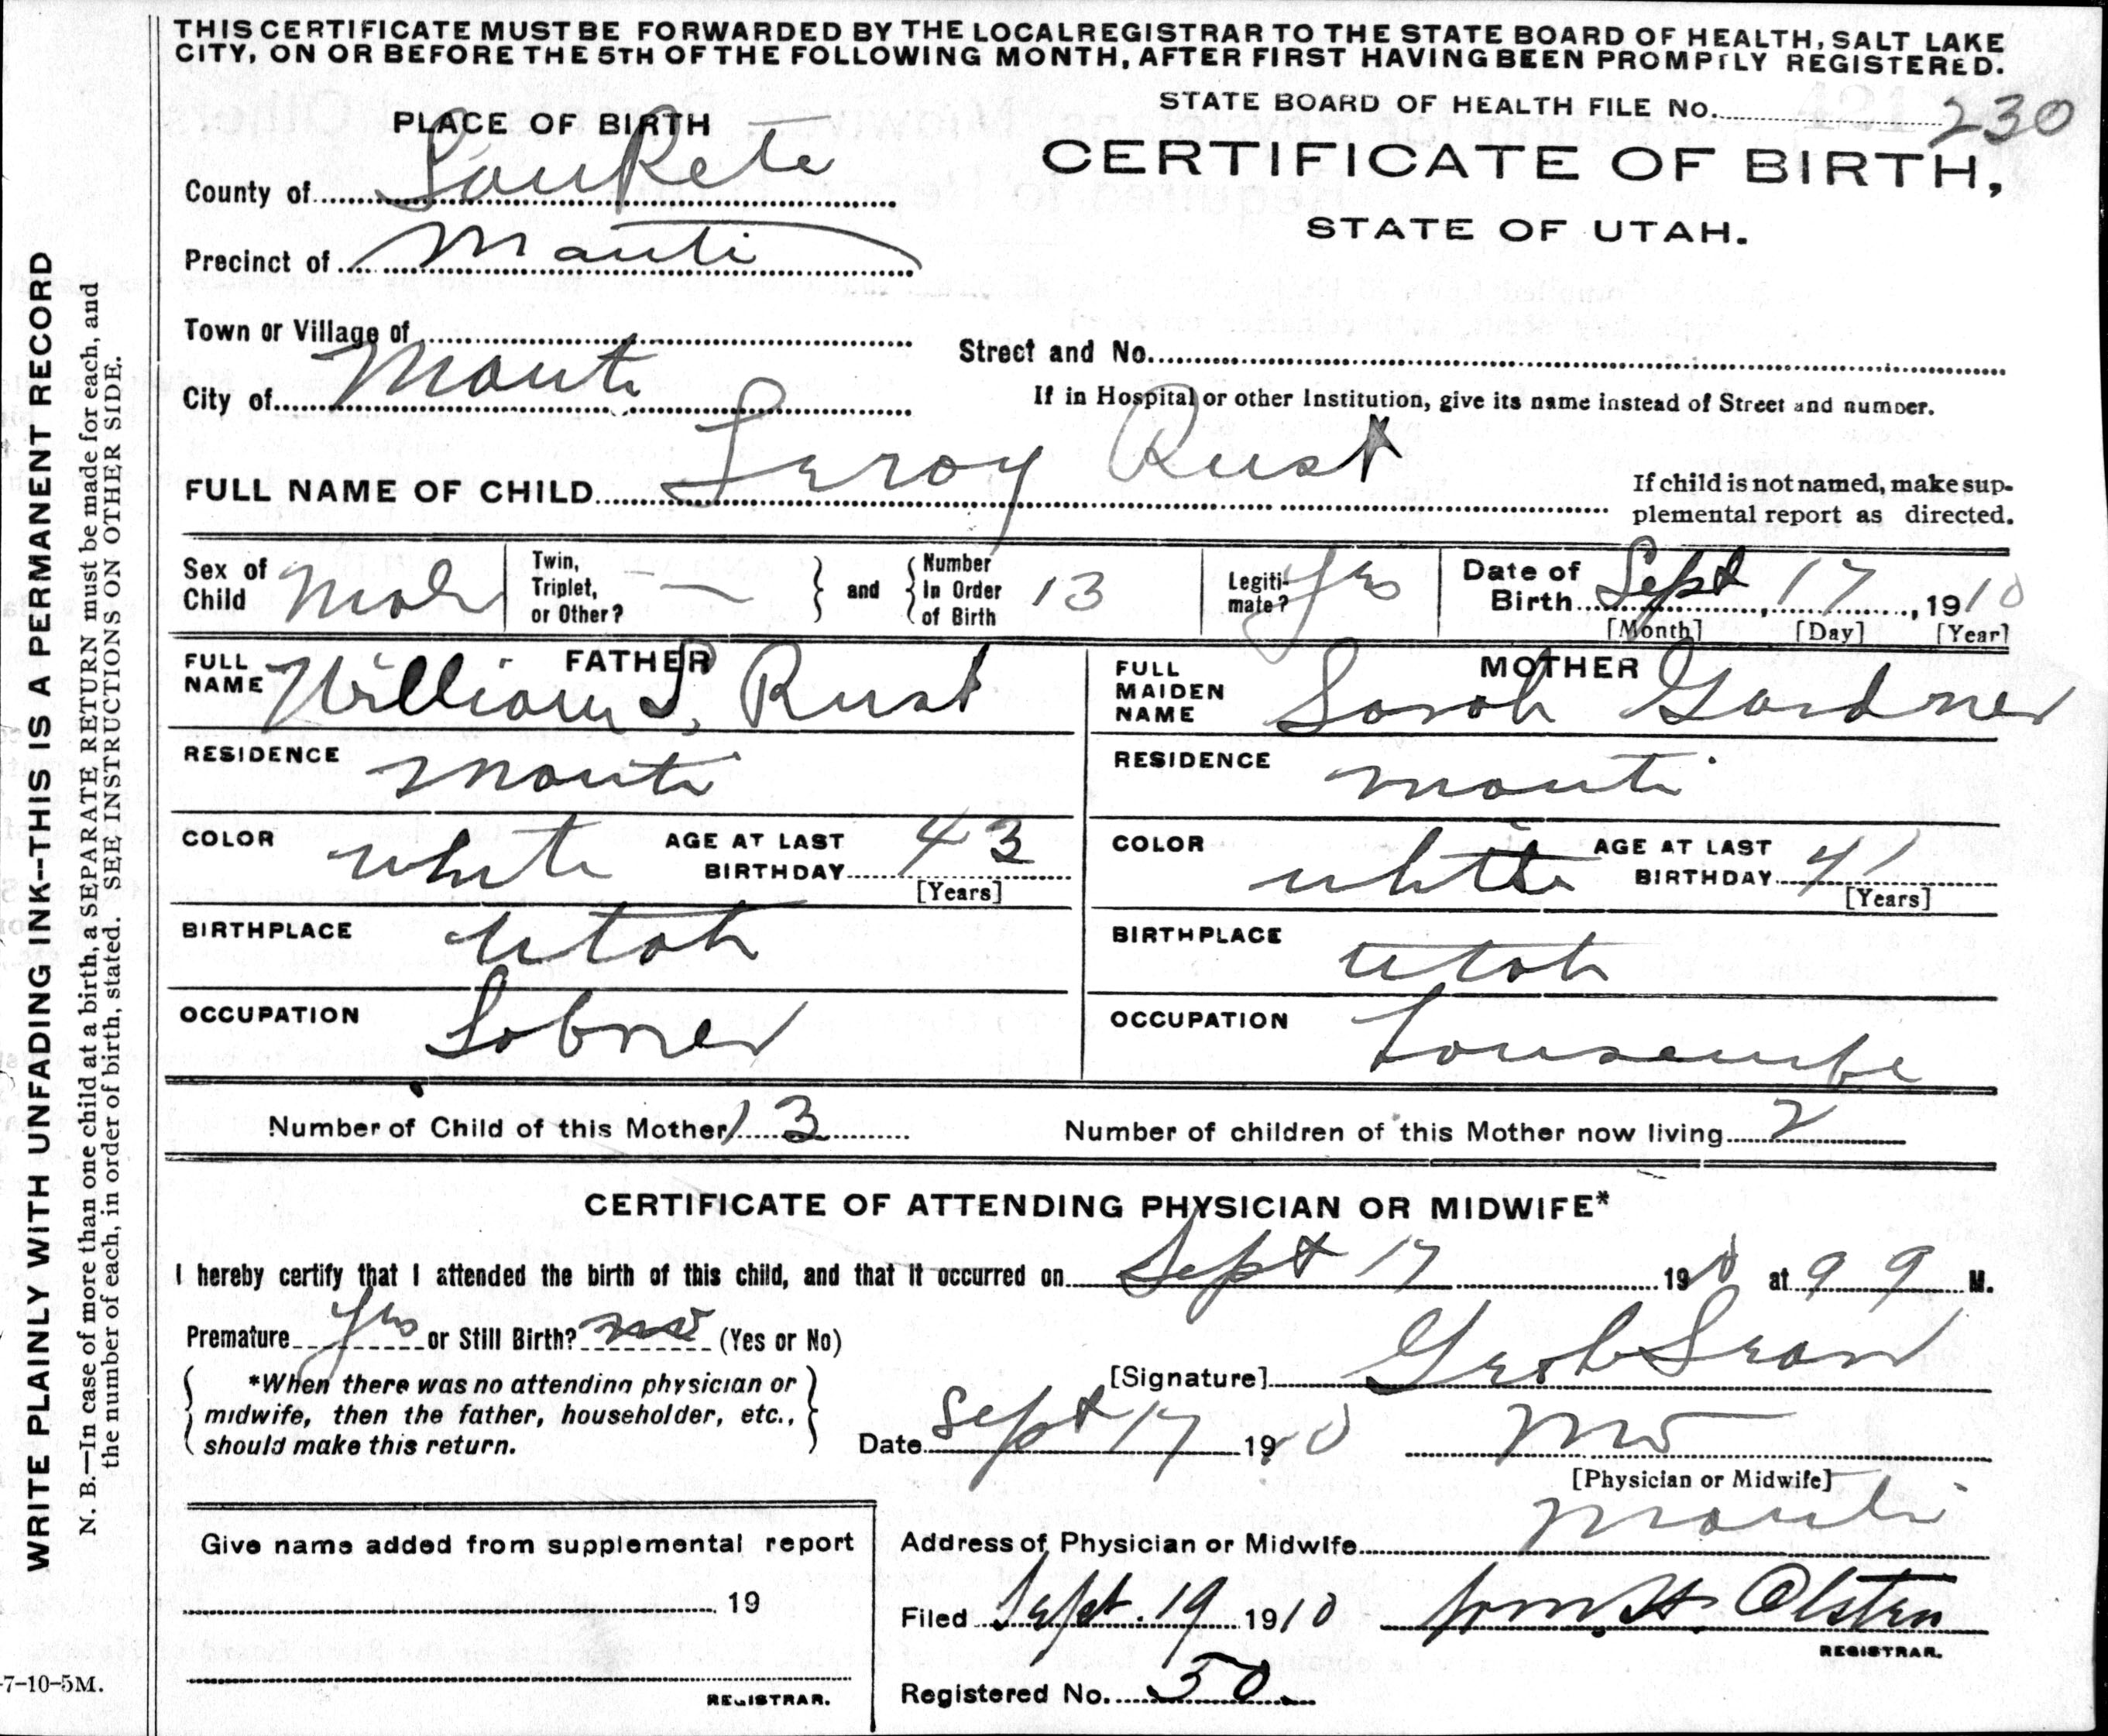 THIS CERTIFICATE MUST BE FORWARDED BY THE LOCAL REGISTRAR TO THE STATE BOARD OF HEALTH, SALT LAKE
CITY, ON OR BEFORE THE 5TH OF THE FOLLOWING MONTH, AFTER FIRST HAVING BEEN PROMPTLY REGISTERED.
STATE BOARD OF HEALTH FILE No. 230
PLACE OF BIRTH
CERTIFICATE OF BIRTH,
STATE OF UTAH.
County of SanPete
Precinct of Manti
Town or Village of
Street and No.
City of Manti
If in Hospital or other Institution, give its name instead of Street and number.
FULL NAME OF CHILD Leroy Rust
If child is not named, make sup-
plemental report as directed.
Sex of Child Male
Twin, Triplet, or Other? —
and Number in Order of Birth 13
Legiti-mate? Yes
Date of Birth Sept, 17, 1910
[Month] [Day] [Year]
FATHER
FULL NAME William S. Rust
RESIDENCE Manti
COLOR white AGE AT LAST BIRTHDAY 43
[Years]
BIRTHPLACE Utah
OCCUPATION Laborer
MOTHER
FULL MAIDEN NAME Sarah Gardner
RESIDENCE Manti
COLOR white AGE AT LAST BIRTHDAY 41
[Years]
BIRTHPLACE Utah
OCCUPATION housewife
Number of Child of this Mother 13 Number of children of this Mother now living 2
CERTIFICATE OF ATTENDING PHYSICIAN OR MIDWIFE*
I hereby certify that I attended the birth of this child, and that it occurred on Sept 17 1910 at 9 M.
Premature Yes or Still Birth? no (Yes or No)
*When there was no attending physician or
midwife, then the father, householder, etc.,
should make this return.
[Signature]
Date Sept 17 1910 MD
[Physician or Midwife]
Give name added from supplemental report
19
REGISTRAR.
Address of Physician or Midwife Manti
Filed Sept. 19 1910 Wm. H. Olsten
REGISTRAR.
Registered No. 50
WRITE PLAINLY WITH UNFADING INK--THIS IS A PERMANENT RECORD
N. B.—In case of more than one child at a birth, a SEPARATE RETURN must be made for each, and
the number of each, in order of birth, stated. SEE INSTRUCTIONS ON OTHER SIDE.
-7-10-5M.